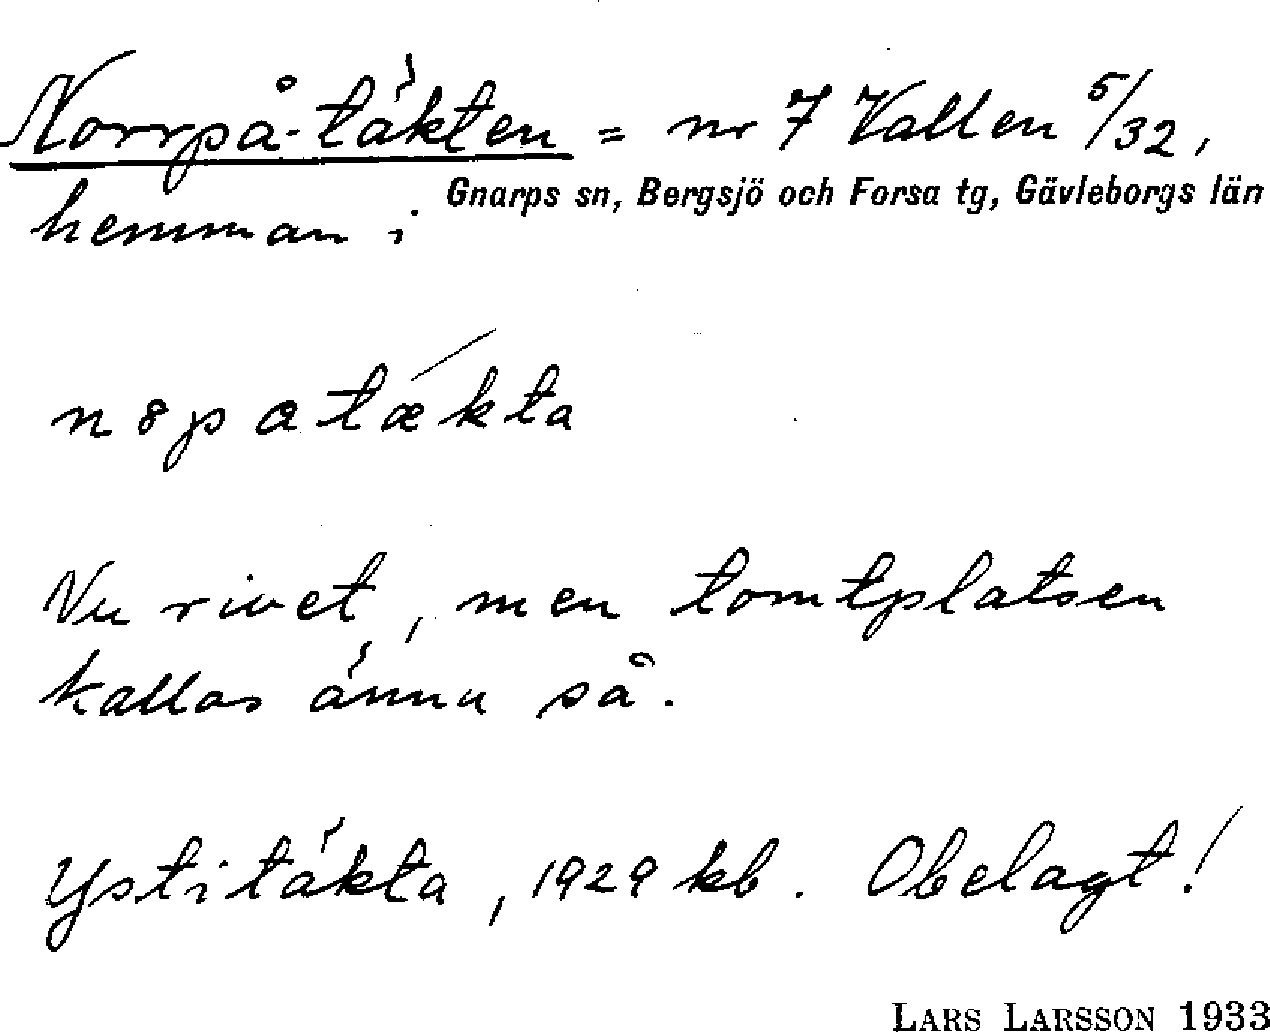 Norrpå-täkten = nr 7 Vallen 5/32,
hemman i Gnarps sn, Bergsjö och Forsa tg, Gävleborgs län
n8patǽkta
Nu rivet, men tomtplatsen
kallas ännu så.
Ystitäkta, 1929 kb. Obelagt!
LARS LARSSON 1933